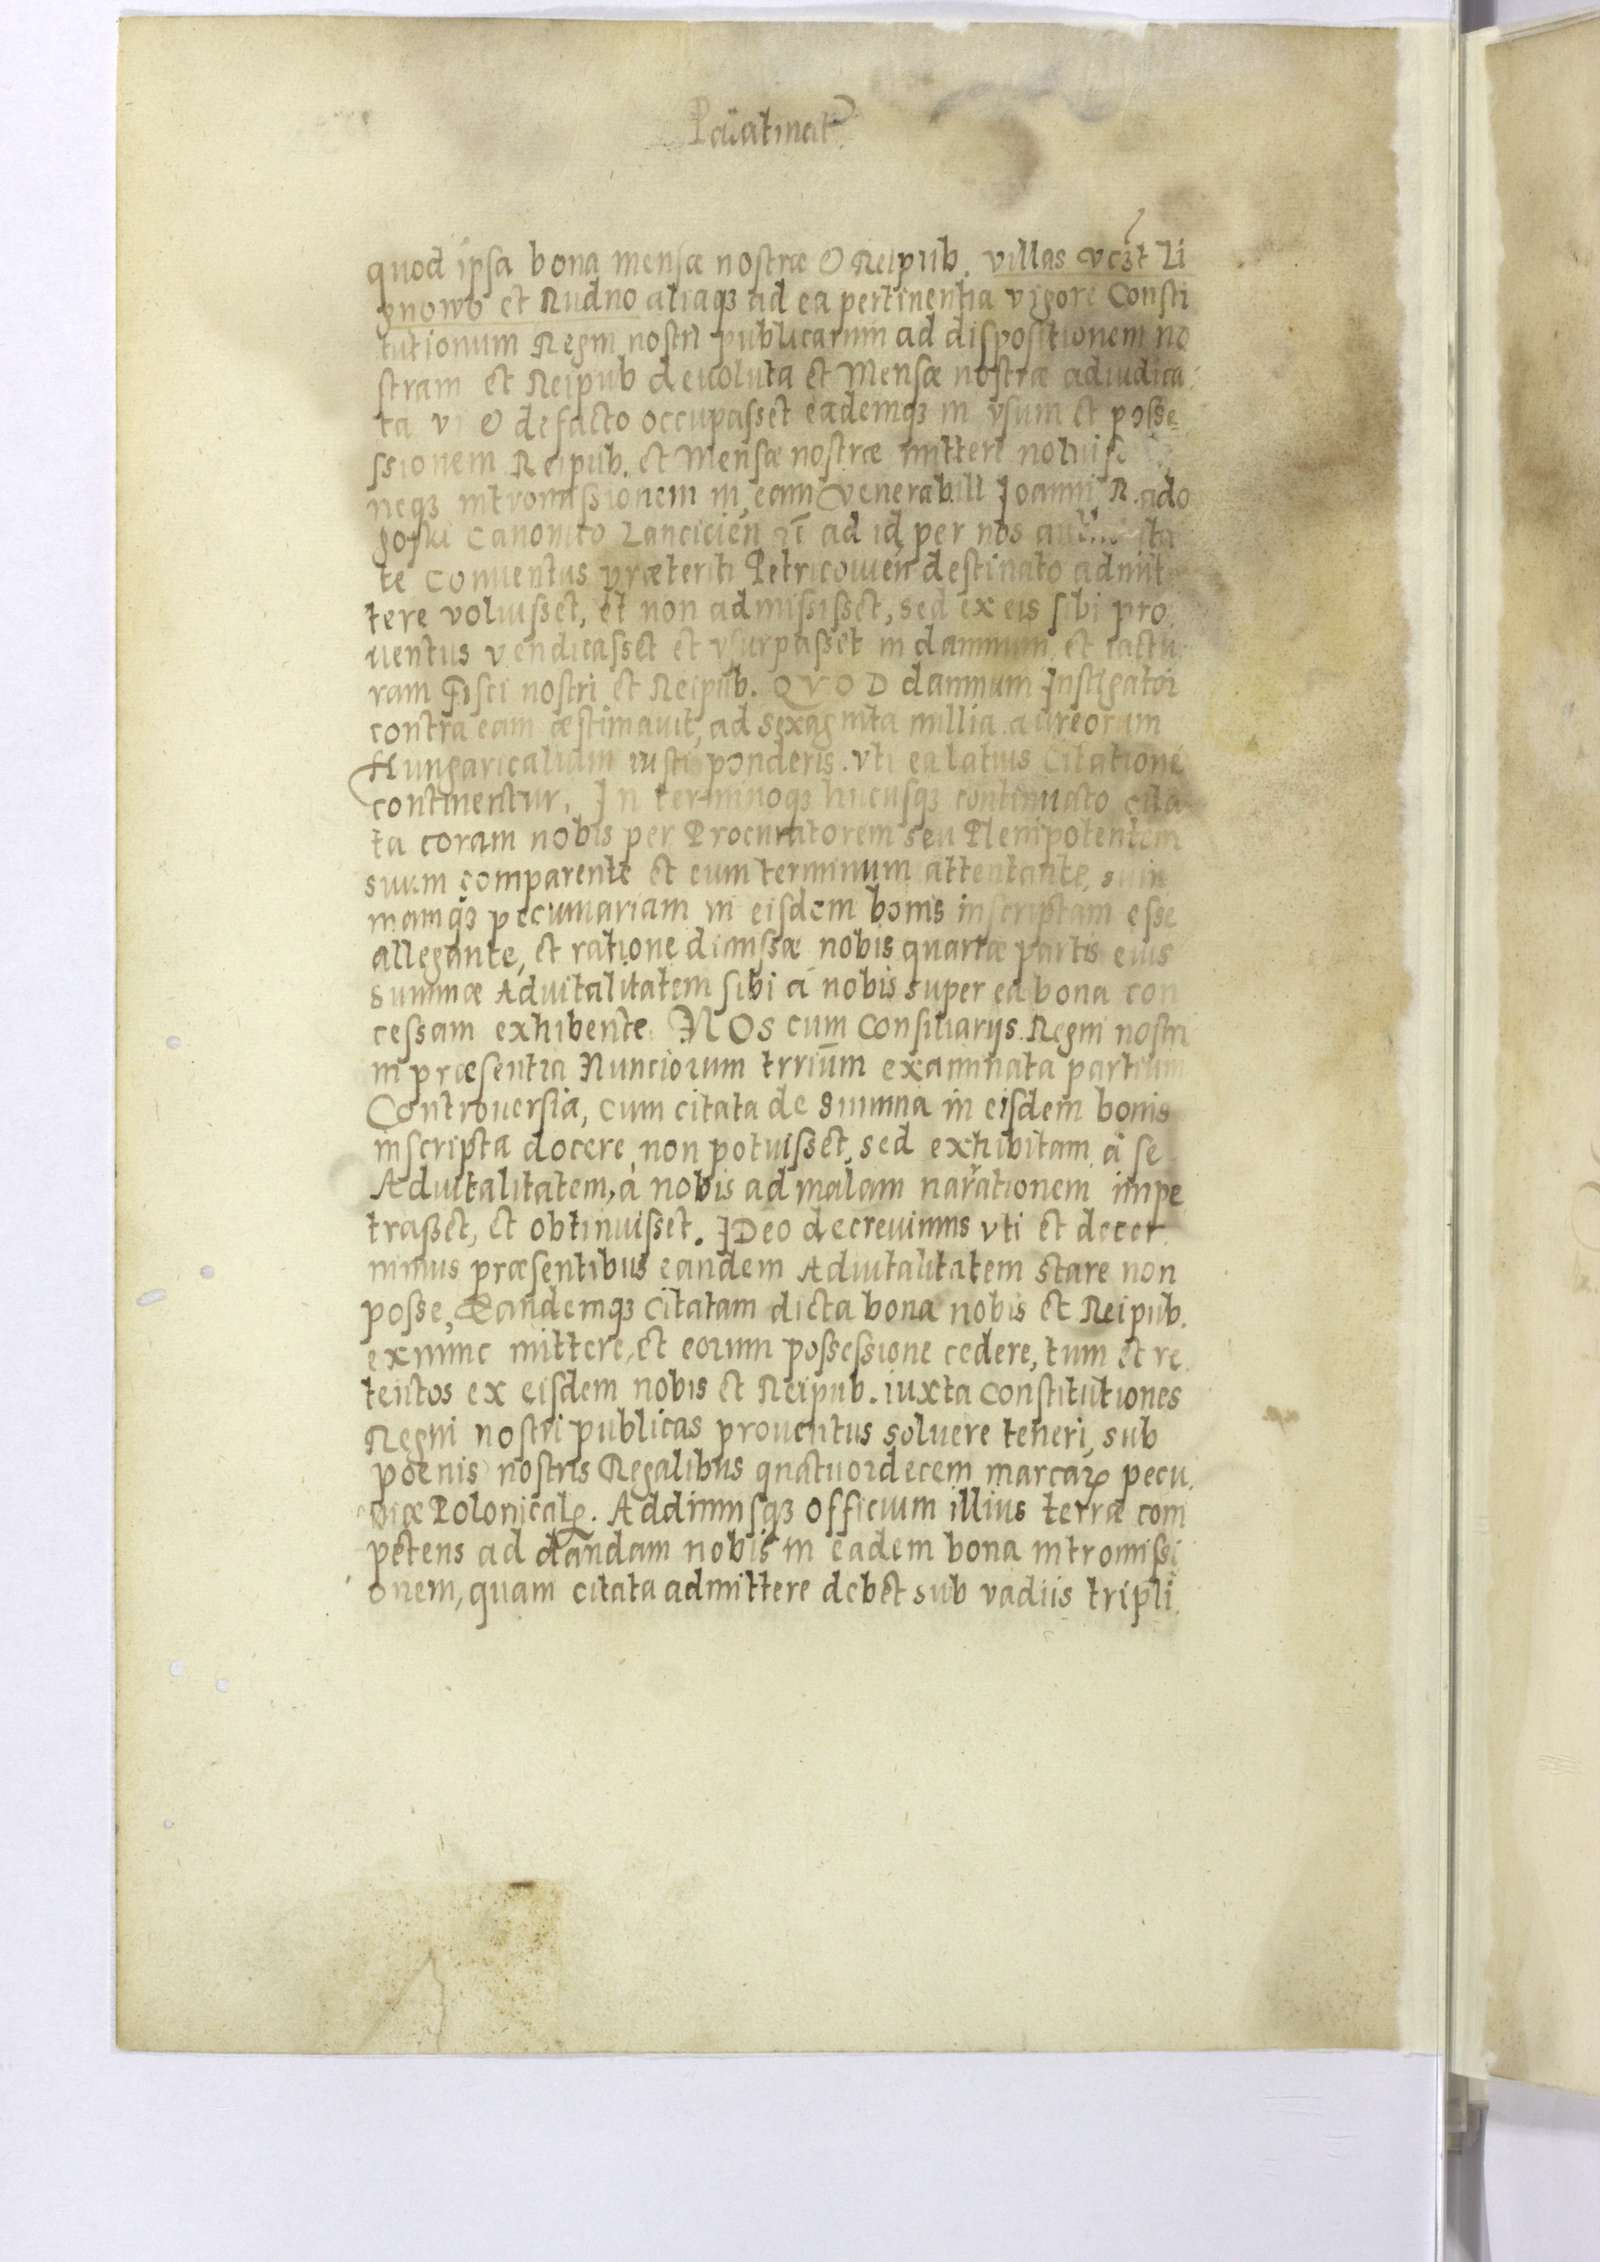 Palatinat
quod ipsa bona mensæ nostræ & Reipub. villas vcꝫt Li
gnowo et Rudno aliaqꝫ ad ea pertinentia vigore Consti
tutionum Regni nostri publicarum ad dispositionem no
stram et Reipub deuoluta et Mensæ nostræ adiudica
ta vi & defacto occupasset eademqꝫ in vsum et posse
ssionem Reipub. et Mensæ nostræ mittere noluiss
neqꝫ intromissionem in eam Venerabili Joanni Rado
goski Canonico Lancicień ad id per nos
te Conuentus præteriti Petricouień destinato admit
tere voluisset, et non admisisset, sed ex eis sibi pro
uentus vendicasset et vsurpasset in damnum et iactu
ram Fisci nostri et Reipub. QVOD damnum Instigator
contra eam æstimauit, ad sexaginta millia aureorum
Hungaricalium iusti ponderis. vti ea latius Citatione
continentur. In terminoqꝫ hucusqꝫ continuato cita
ta coram nobis per Procuratorem seu Plenipotentem
suum comparente et eum terminum attentante, sum
mamqꝫ pecuniariam in eisdem bonis inscriptam esse
allegante, et ratione dimissæ nobis quartæ partis eius
summæ Aduitalitatem sibi á nobis super ea bona con
cessam exhibente. NOS cum Consiliarijs Regni nostri
in præsentia Nunciorum trrium examinata partium
Controuersia, cum citata de Summa in eisdem bonis
inscripta docere non potuisset, sed exhibitam á se
Aduitalitatem, á nobis ad malam narrationem impe
trasset, et obtinuisset. IDeo decreuimus vti et decer
nimus præsentibus eandem Aduitalitatem stare non
posse, Eandemqꝫ Citatam dicta bona nobis et Reipub.
exnunc mittere, et eorum possessione cedere, tum et re
tentos ex eisdem nobis et Reipub. iuxta Constitutiones
Regni nostri publicas prouentus soluere teneri, sub
poenis nostris Regalibus quatuordecem marcaꝝ pecu
niæ Polonicalꝭ. Addimusqꝫ officium illius terræ com
petens ad dandam nobis in eadem bona intromissi
onem, quam citata admittere debet sub vadiis tripli